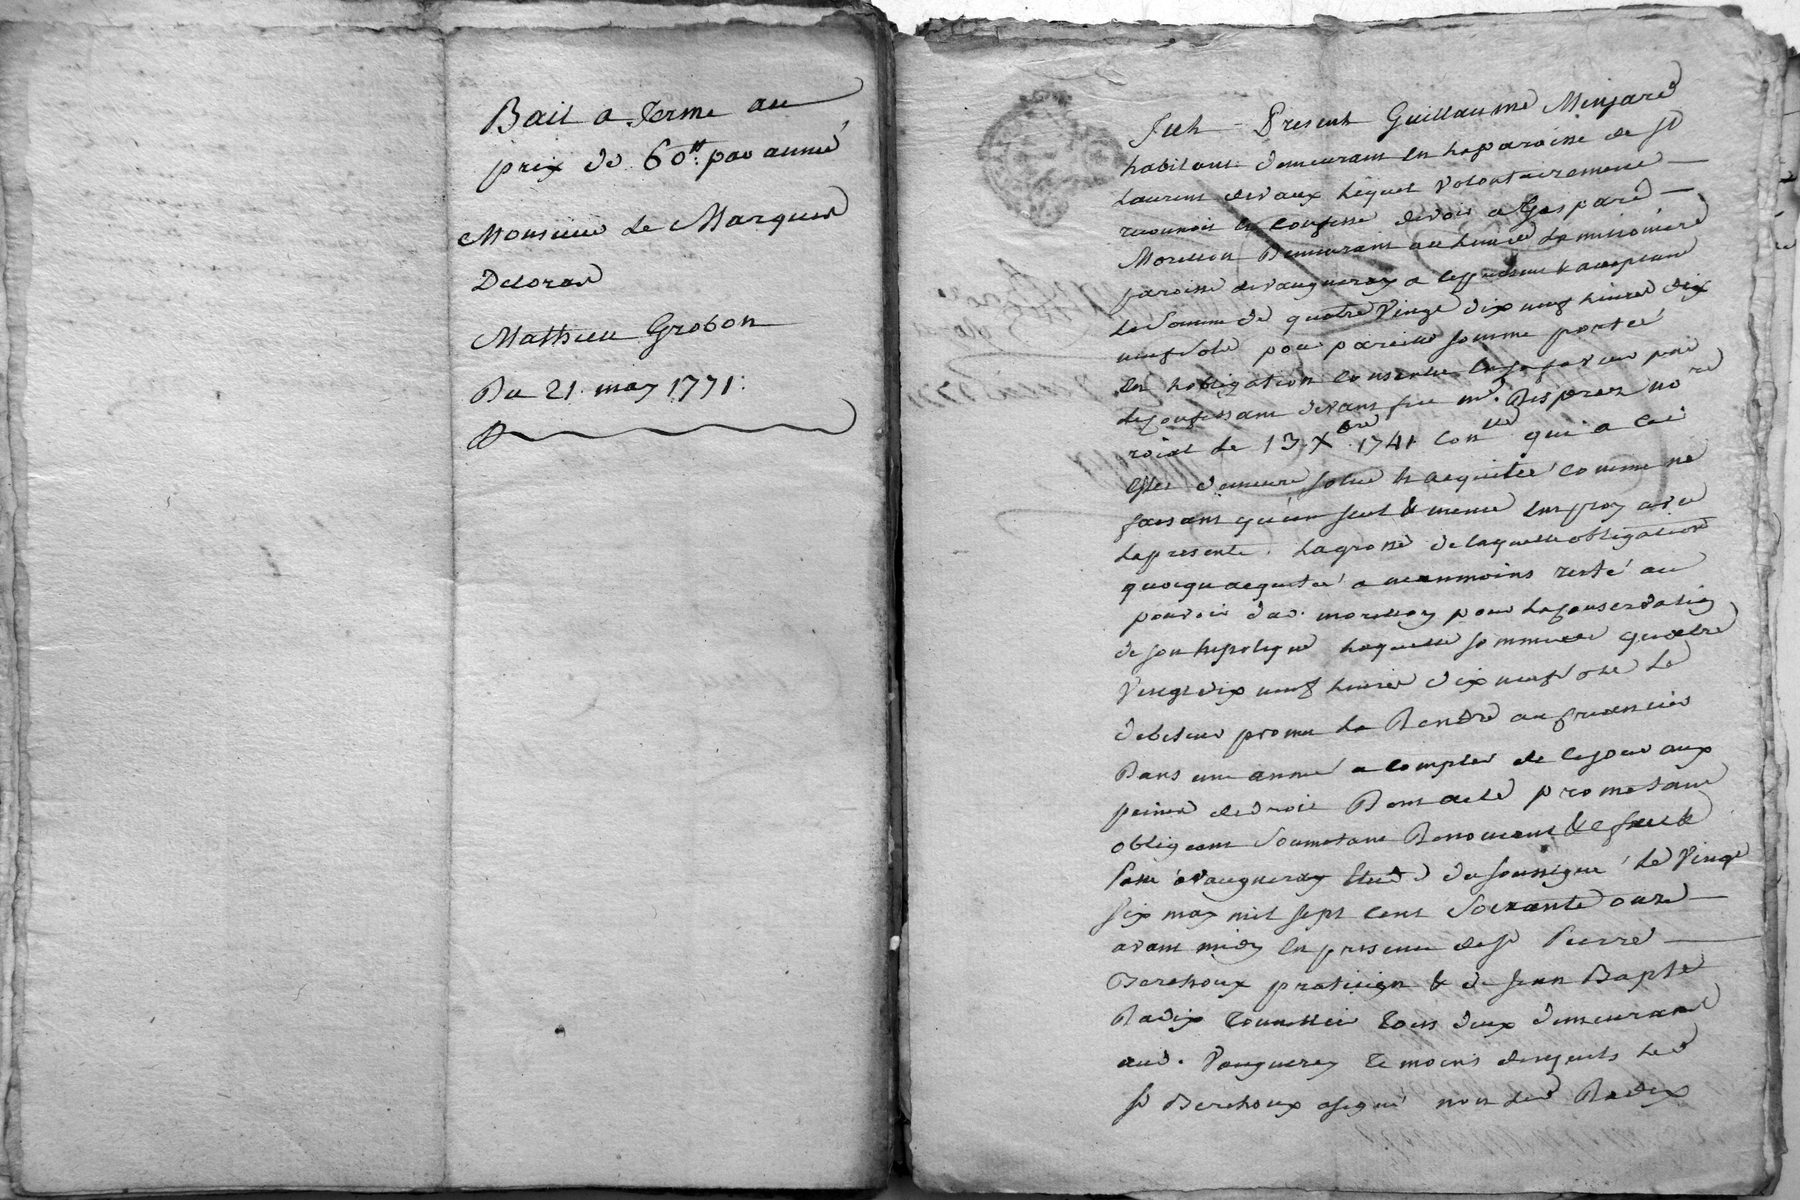 Bail a ferme au
prix de 60ᵗᵗ par année
Monsieur le Marquis
Deloras
Mathieu Grobon
Du 21 may 1771.
Fut Present Guillaume Minjard
habitant demeurant en la paroisse de St
Laurent devaux Lequel volontairement
reconnoit et confesse devoir a Gaspard
Morellon Demeurant au lieu de la missonniere
paroisse devaugneray a ce present & acceptant
La Somme de quatre Vingt dix neuf livres dix
neuf sols pour pareille somme portée
en hobligation consentie en sa faveur par
le confessant devant feu me. Desprez nore
roial le 13 Xbre 1741 Conlle qui a cet
effet demeure solue et acquitée comme ne
faisant qu'un seul & meme employ avec
la presente. La grosse de laquelle obligation
quoique acquitée a neanmoins resté au
pouvoir dud. morellon pour la conservation
de son hipoteque laquelle somme de quatre
Vingt dix neuf livres dix neuf sols le
debiteur promet de Rendre au creancier
Dans une année a compter de ce jour aux
peines de droit Dont acte prometant
obligeant Soumetant Renoncant & c fait &
Passé a Vaugneray Etude du soussigné le vingt
six may mil sept cent Soixante onze
avant midy en presence de sr Pierre
Berchoux praticien & de Jean Bapte
Radix Tonnellier tous deux demeurant
aud. Vaugneray temoins desquels led
sr Berchoux a signé non led Radix